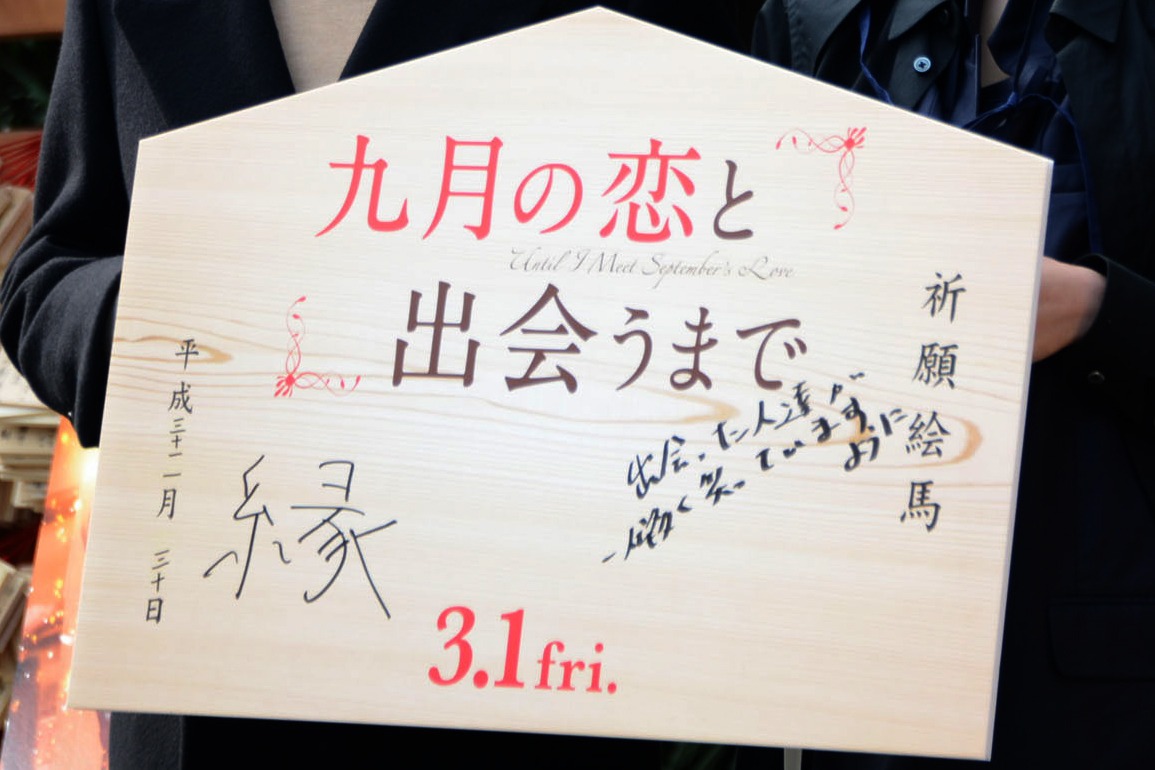 九月の恋と
Until I Meet September's Love
出会うまで
祈願絵馬
出会った人達が
笑っていますように
縁
平成三十一月 三十日
3.1 fri.